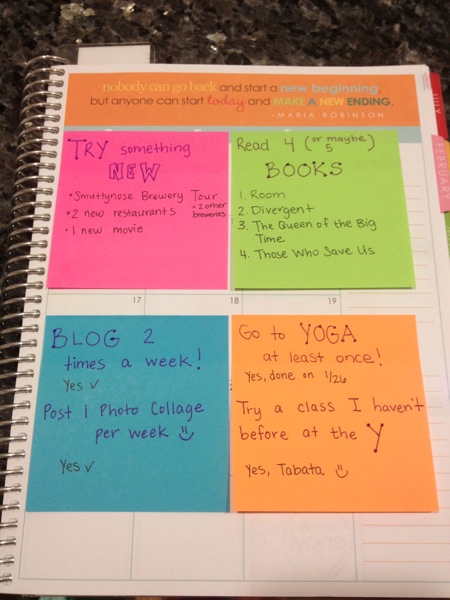 nobody can go back and start a new beginning,
but anyone can start today and MAKE A NEW ENDING.
- MARIA ROBINSON
TRY something
NEW
• Smuttynose Brewery Tour
+ 2 other
breweries
• 2 new restaurants
• 1 new movie
Read 4 (or maybe 5)
BOOKS
1. Room
2. Divergent
3. The Queen of the Big
Time
4. Those Who Save Us
17
18
19
BLOG 2
times a week!
Yes ✓
Post 1 Photo Collage
per week
Yes ✓
Go to YOGA
at least once!
Yes, done on 1/26
Try a class I haven't
before at the Y
Yes, Tabata
JULY
FEBRUARY